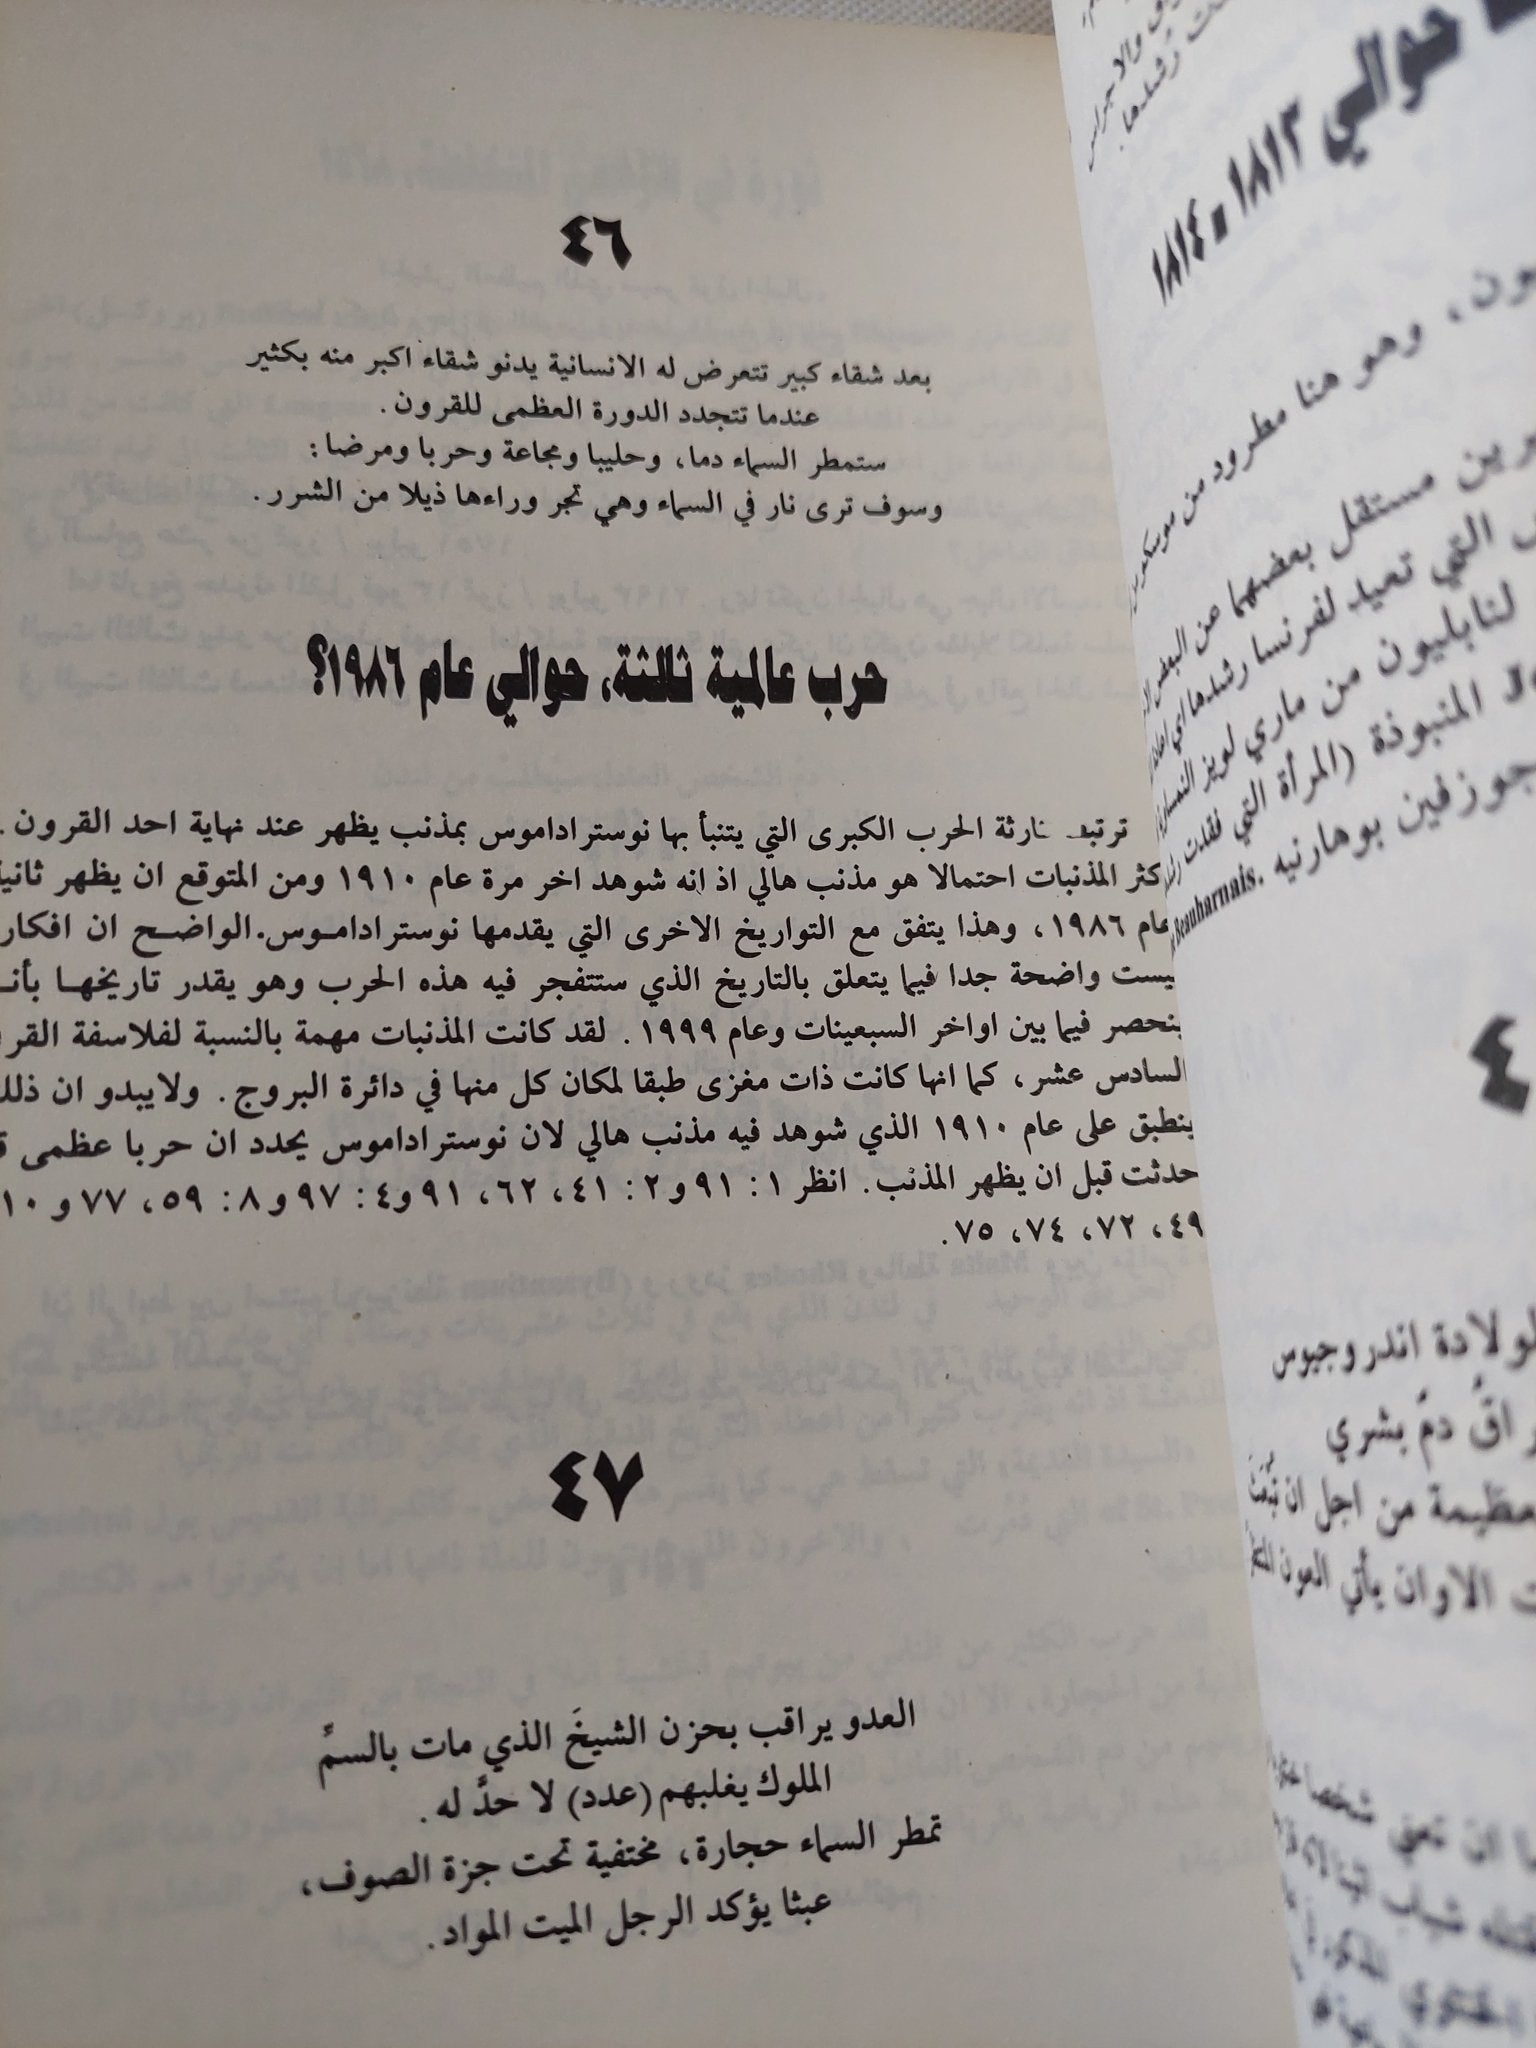 ٤٦
بعد شقاء كبير تتعرض له الانسانية يدنو شقاء اكبر منه بكثير
عندما تتجدد الدورة العظمى للقرون.
ستمطر السماء دما، وحليبا ومجاعة وحربا ومرضا:
وسوف ترى نار في السماء وهي تجر وراءها ذيلا من الشرر.
حرب عالمية ثالثة، حوالي عام ١٩٨٦؟
الحرب الكبرى التي يتنبأ بها نوستراداموس بمذنب يظهر عند نهاية احد القرون.
المذنبات احتمالا هو مذنب هالي اذ انه شوهد اخر مرة عام ١٩١٠ ومن المتوقع ان يظهر
عام ١٩٨٦، وهذا يتفق مع التواريخ الاخرى التي يقدمها نوستراداموس. الواضح ان افكار
واضحة جدا فيما يتعلق بالتاريخ الذي ستتفجر فيه هذه الحرب وهو يقدر تاريخها
ينحصر فيما بين اواخر السبعينات وعام ١٩٩٩. لقد كانت المذنبات مهمة بالنسبة لفلاسفة
السادس عشر، كما انها كانت ذات مغزى طبقا لمكان كل منها في دائرة البروج. ولايبدو ان
ينطبق على عام ١٩١٠ الذي شوهد فيه مذنب هالي لان نوستراداموس يحدد ان حربا عظمى
حدثت قبل ان يظهر المذنب. انظر ١: ٩١ و ٢: ٤١، ٦٢، ٩١ و ٤: ٩٧ و ٨: ٥٩، ٧٧ و ١٠
٤٩، ٧٢، ٧٤، ٧٥.
٤٧
العدو يراقب بحزن الشيخَ الذي مات بالسمِّ
الملوك يغلبهم (عدد) لا حدَّ له.
تمطر السماء حجارة، مختفية تحت جزة الصوف،
عبثا يؤكد الرجل الميت المواد.
حوالي ١٨١٣ - ١٨١٤
وهو هنا مطرود من
مستقل بعضهما عن البعض
التي تعيد لفرنسا رشدها
لنابليون من ماري لويز
المنبوذة (المرأة التي فقدت
جوزفين بوهارنيه Beauharnais.
٤
لولادة اندروجيوس
دمّ بشري
من اجل ان
الاوان يأتي العون
ان تعني شخصا